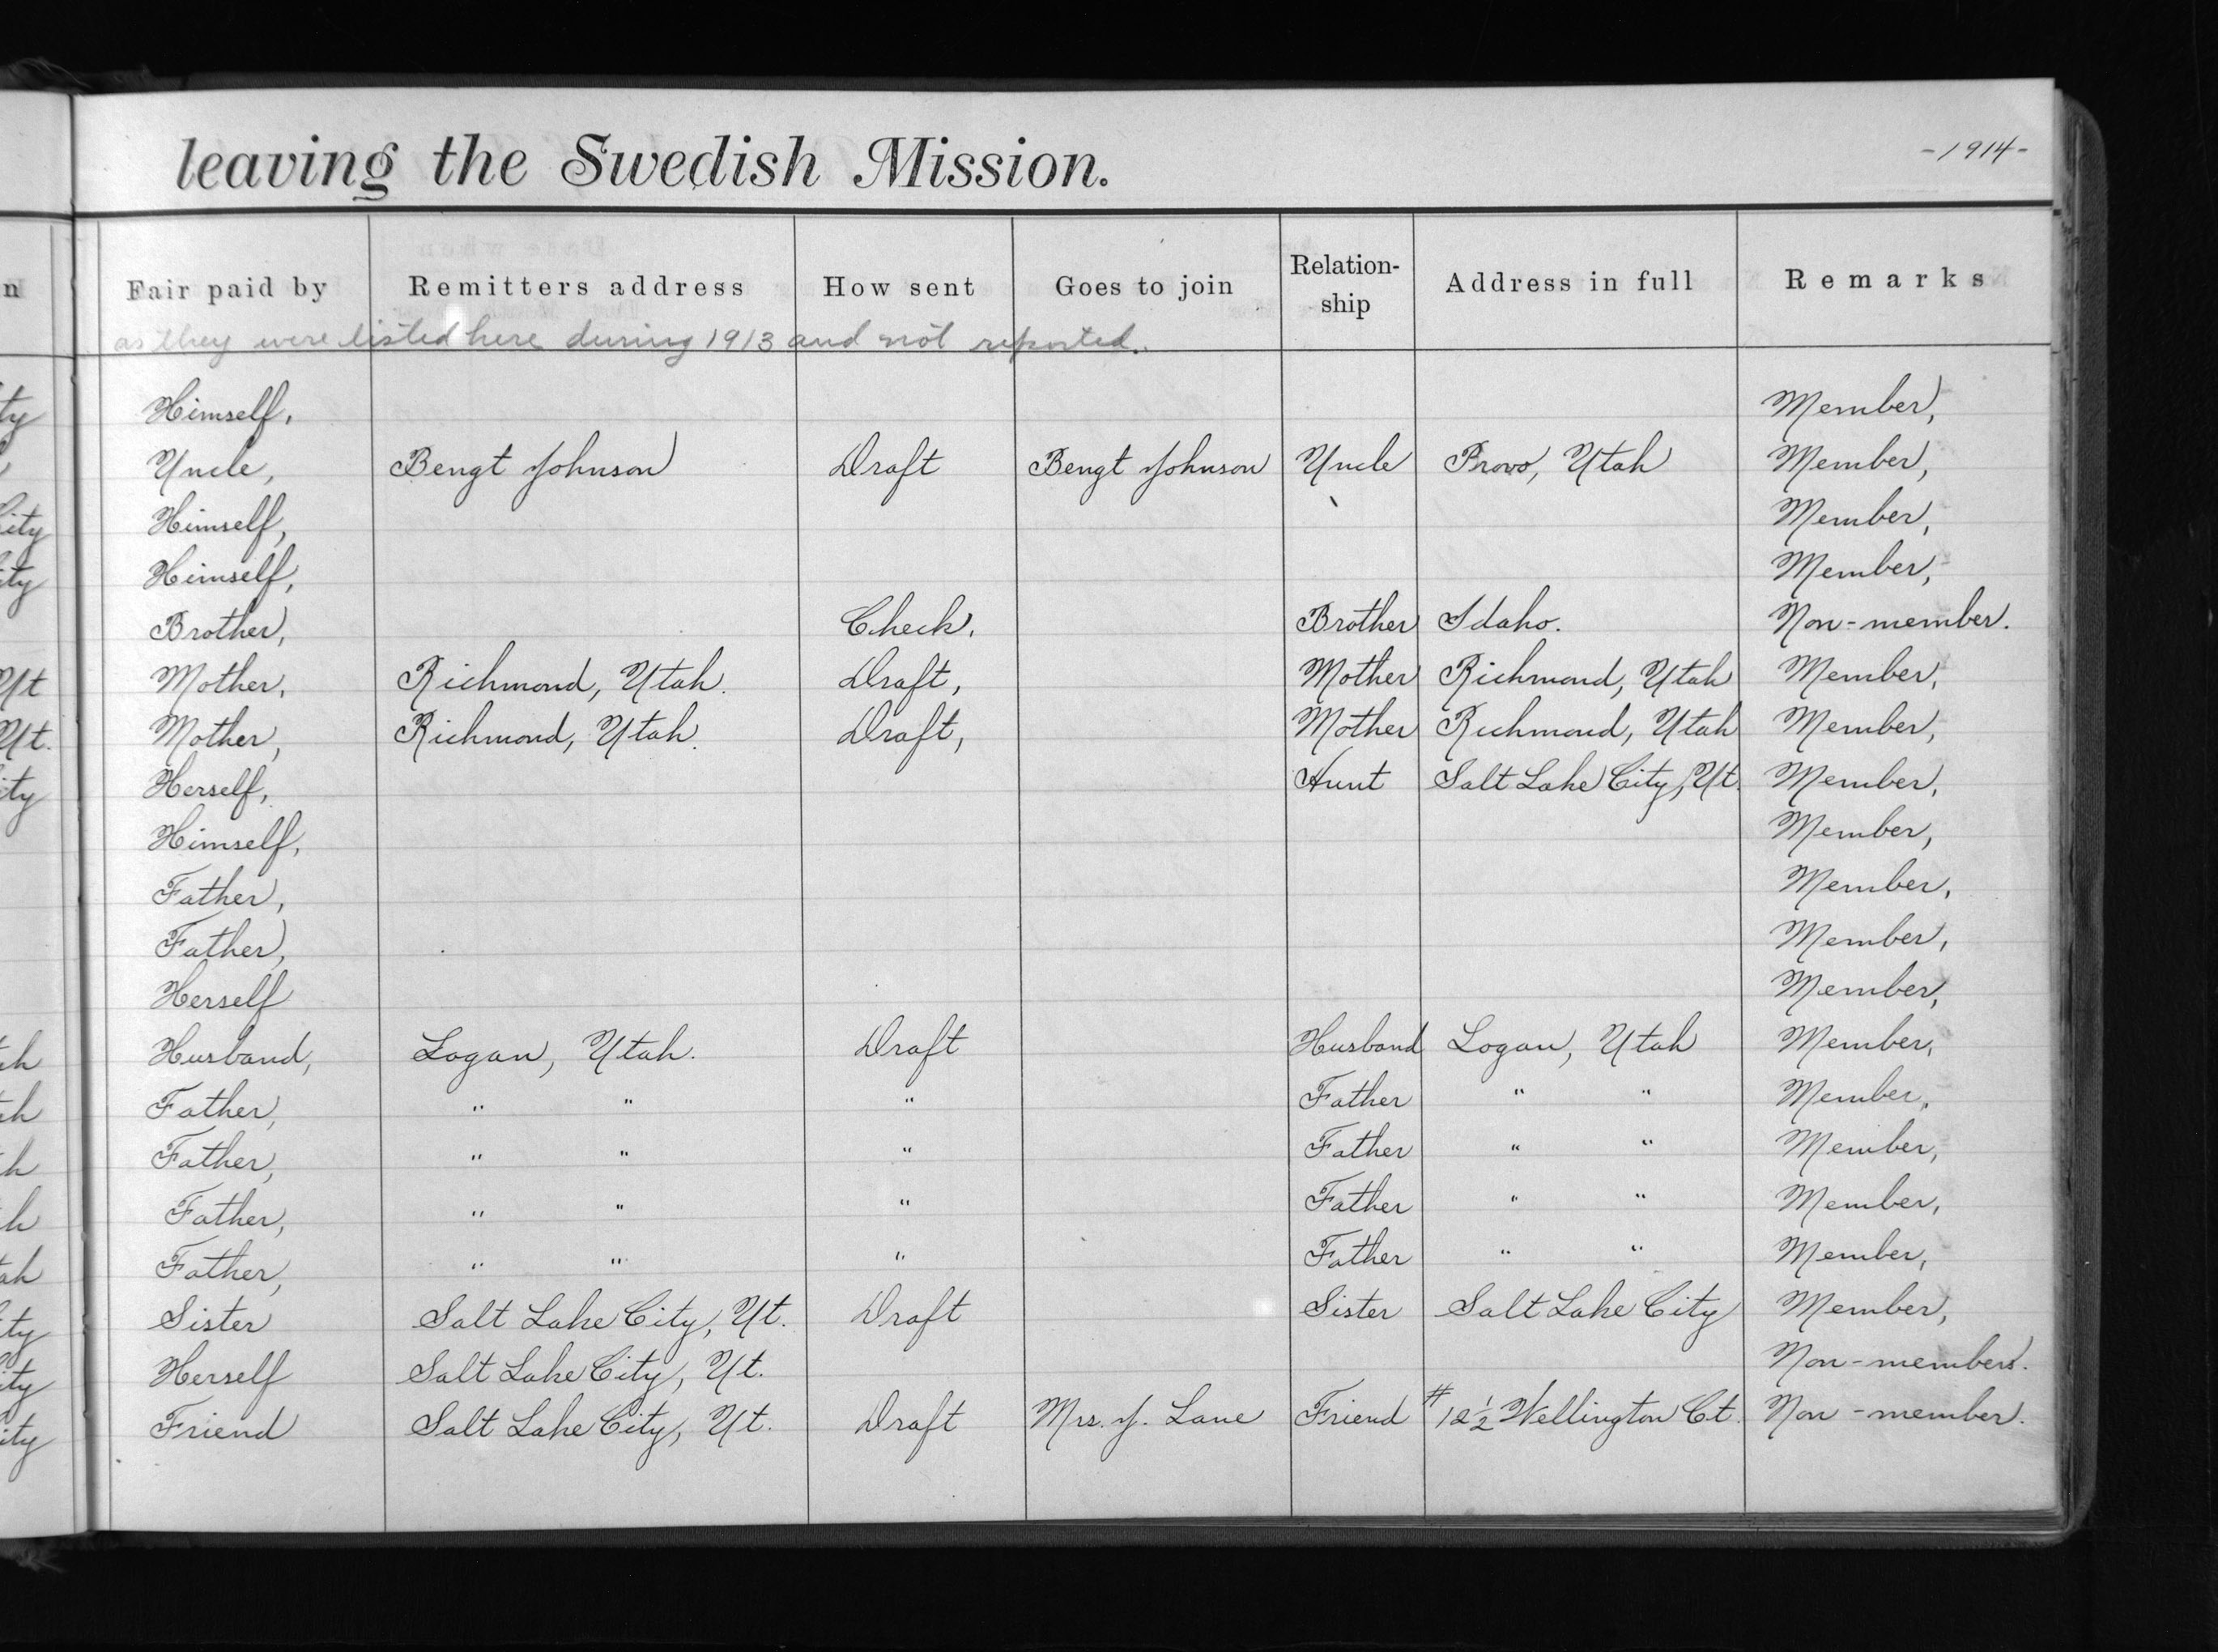 leaving the Swedish Mission. -1914-
n Fair paid by Remitters address How sent Goes to join Relation-ship Address in full Remarks
as they were listed here during 1913 and not reported.
ty Himself, Member,
Uncle, Bengt Johnson Draft Bengt Johnson Uncle Provo, Utah Member,
City Himself, Member,
ity Himself, Member,
Brother, Check. Brother Idaho. Non-member.
Ut Mother, Richmond, Utah. Draft, Mother Richmond, Utah Member,
Ut. Mother, Richmond, Utah. Draft, Mother Richmond, Utah Member,
ity Herself, Aunt Salt Lake City, Ut. Member,
Himself, Member,
Father, Member,
Father, Member,
Herself Member,
ah Husband, Logan, Utah. Draft Husband Logan, Utah Member,
ah Father, " " " Father " " Member,
h Father, " " " Father " " Member,
h Father, " " " Father " " Member,
ah Father, " " " Father " " Member,
ity Sister Salt Lake City, Ut. Draft Sister Salt Lake City Member,
ity Herself Salt Lake City, Ut. Non-member.
ity Friend Salt Lake City, Ut. Draft Mrs. J. Lane Friend #12½ Wellington Ct. Non-member.